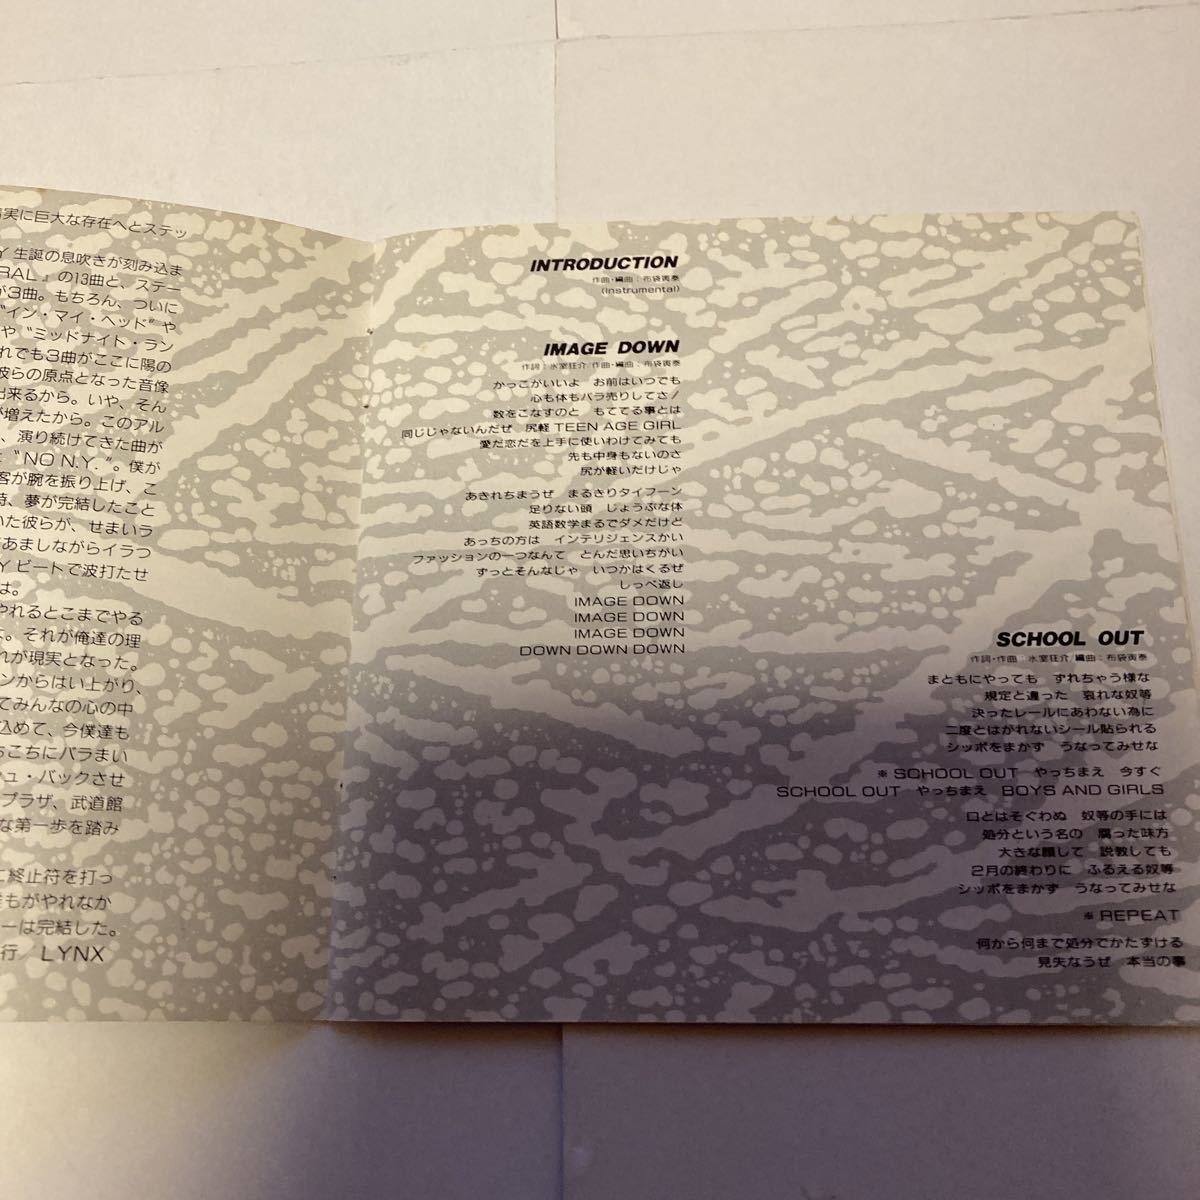 実に巨大な存在へとステッ
Y 生誕の息吹きが刻み込ま
RAL』の13曲と、ステー
が3曲。もちろん、ついに
“イン・マイ・ヘッド”や
や“ミッドナイト・ラン
れでも3曲がここに陽の
彼らの原点となった音像
出来るから。いや、そん
が増えたから。このアル
、演り続けてきた曲が
“NO N.Y.”。僕が
客が腕を振り上げ、こ
時、夢が完結したこと
いた彼らが、せまいラ
あましながらイラつ
Y ビートで波打たせ
は。
やれるとこまでやる
よ。それが俺達の理
れが現実となった。
ンからはい上がり、
てみんなの心の中
込めて、今僕達も
ちこちにバラまい
シュ・バックさせ
プラザ、武道館
な第一歩を踏み
に終止符を打っ
もがやれなか
ーは完結した。
行／LYNX
INTRODUCTION
作曲・編曲：布袋寅泰
(instrumental)
IMAGE DOWN
作詞：氷室狂介 作曲・編曲：布袋寅泰
かっこがいいよ　お前はいつでも
心も体もバラ売りしてさ！
数をこなすのと　もててる事とは
同じじゃないんだぜ　尻軽 TEEN AGE GIRL
愛だ恋だを上手に使いわけてみても
先も中身もないのさ
尻が軽いだけじゃ
あきれちまうぜ　まるきりタイフーン
足りない頭　じょうぶな体
英語数学まるでダメだけど
あっちの方は　インテリジェンスかい
ファッションの一つなんて　とんだ思いちがい
ずっとそんなじゃ　いつかはくるぜ
しっぺ返し
IMAGE DOWN
IMAGE DOWN
IMAGE DOWN
DOWN DOWN DOWN
SCHOOL OUT
作詞・作曲：氷室狂介 編曲：布袋寅泰
まともにやっても　ずれちゃう様な
規定と違った　哀れな奴等
決ったレールにあわない為に
二度とはがれないシール貼られる
シッポをまかず　うなってみせな
※ SCHOOL OUT　やっちまえ　今すぐ
SCHOOL OUT　やっちまえ　BOYS AND GIRLS
口とはそぐわぬ　奴等の手には
処分という名の　腐った味方
大きな顔して　説教しても
2月の終わりに　ふるえる奴等
シッポをまかず　うなってみせな
※ REPEAT
何から何まで処分でかたずける
見失なうぜ　本当の事